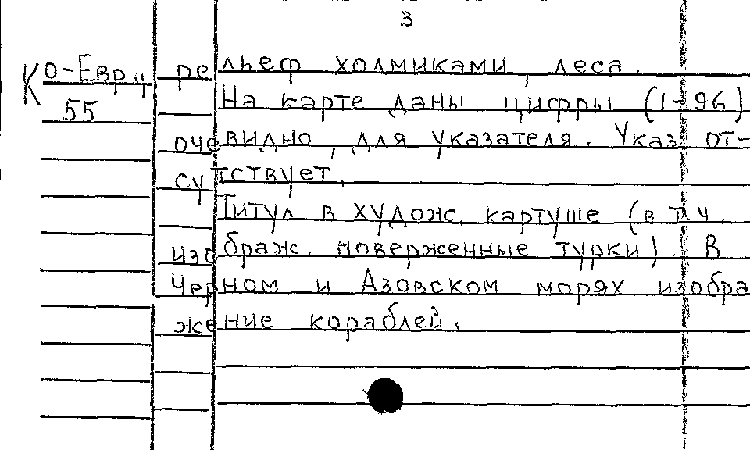 3
Ко-Евр. 4 рельеф холмиками, леса.
55 На карте даны цифры (1-96)
очевидно, для указателя. Указ. от-
сутствует.
Титул в худож. картуше (в т.ч.
изображ. поверженные турки). В
Черном и Азовском морях изобра
жение кораблей.